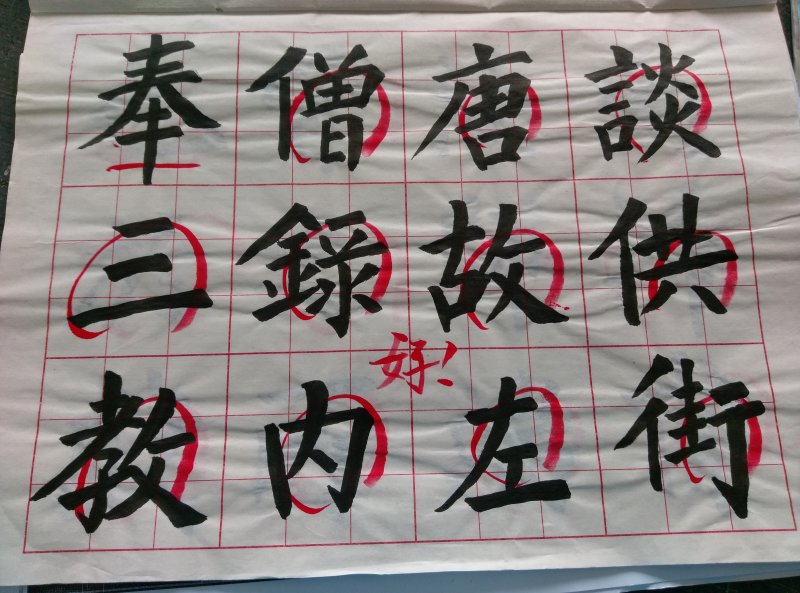 談供街
唐故左
僧録内
奉三教
好!